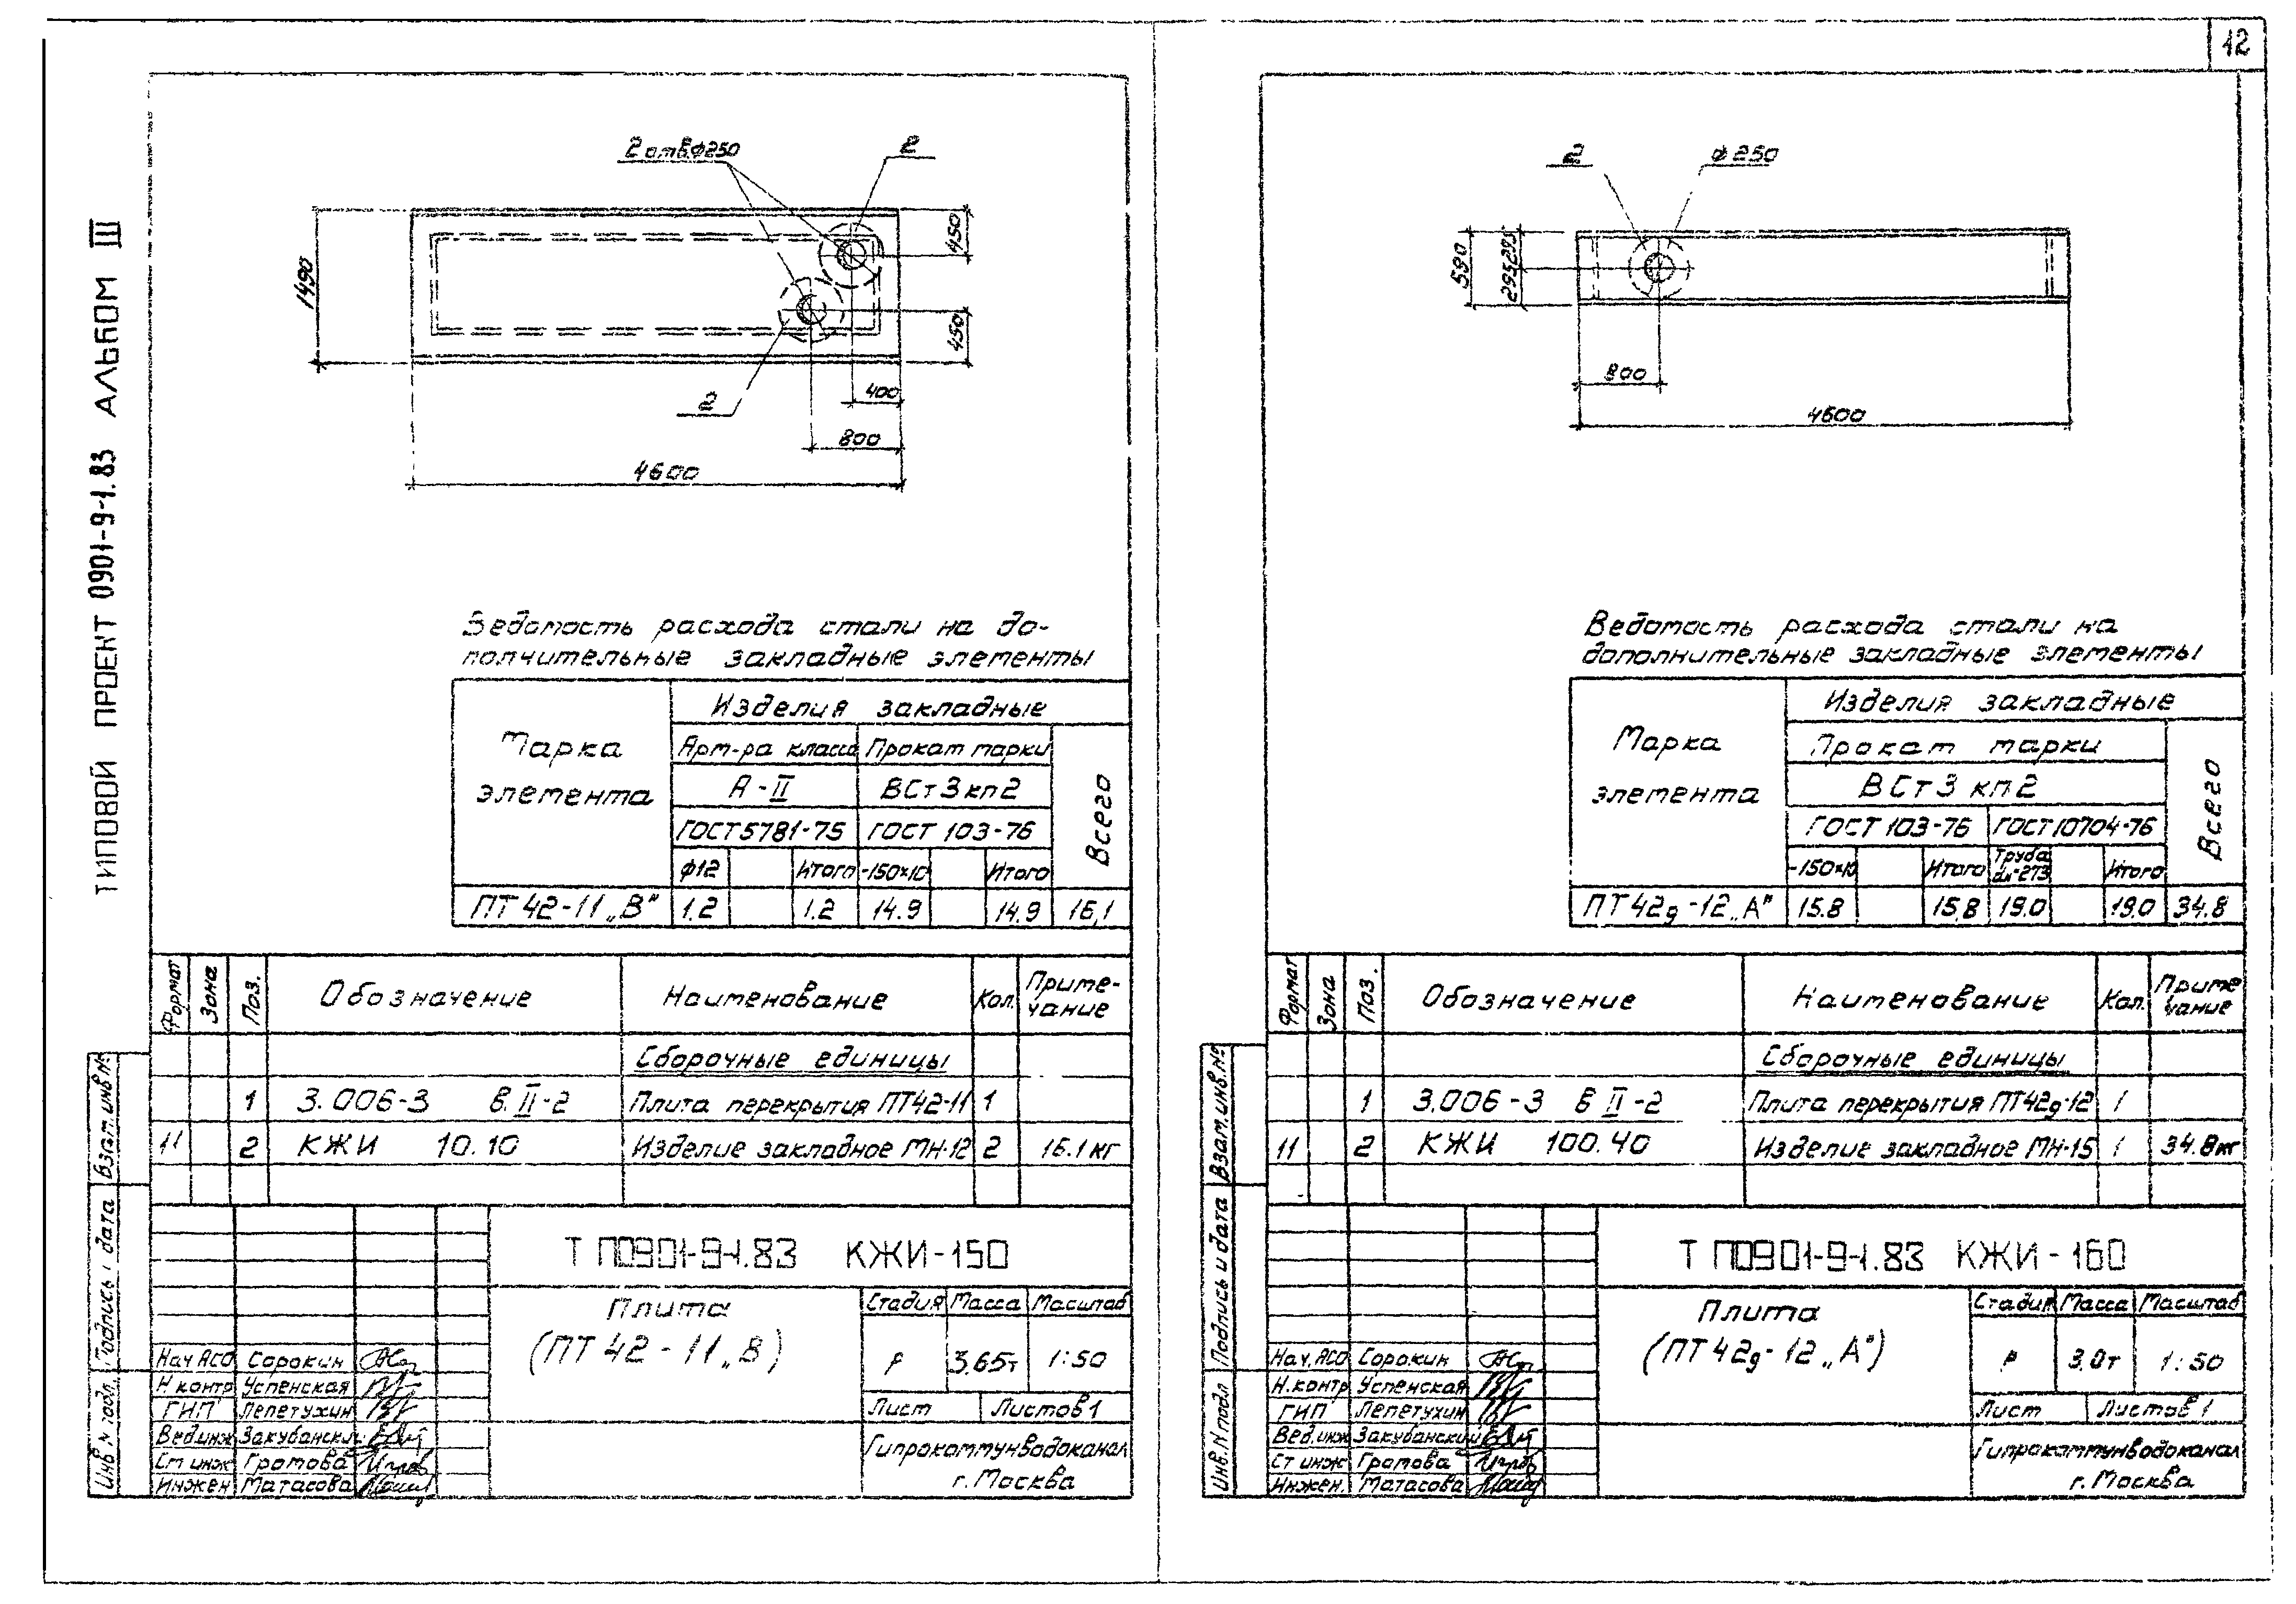 12
ТИПОВОЙ ПРОЕКТ 0901-9-1.83 АЛЬБОМ III
2 отв.ф250
2
1490
450
450
2
400
800
4600
Ведомость расхода стали на до-
полнительные закладные элементы
Марка элемента
Изделия закладные
Арм-ра класса
Прокат марки
Всего
А-II
ВСт3кп2
ГОСТ5781-75
ГОСТ 103-76
ф12
Итого
-150×10
Итого
ПТ42-11„В"
1.2
1.2
14.9
14.9
16,1
Формат
Зона
Поз.
Обозначение
Наименование
Кол.
Приме-
чание
Сборочные единицы
1
3.006-3 в.II-2
Плита перекрытия ПТ42-11
1
11
2
КЖИ 10.10
Изделие закладное МН-12
2
16.1кг
Взам.инв№
Подпись и дата
Инв N подл.
Т П0901-9-1.83 КЖИ-150
Плита
(ПТ42-11„В)
Стадия
Масса
Масштаб
Р
3,65т
1:50
Лист
Листов 1
Гипрокоммунводоканал
г. Москва
Нач АСО Сорокин
Н контр Успенская
ГИП Лепетухин
Вед.инж Закубанск
Ст инж Громова
Инжен Матасова
2
ф250
590
295
295
800
4600
Ведомость расхода стали на
дополнительные закладные элементы
Марка
элемента
Изделия закладные
Прокат марки
Всего
ВСт3 кп2
ГОСТ 103-76
ГОСТ10704-76
-150×10
Итого
Труба
дл-273
Итого
ПТ42д-12„А"
15.8
15,8
19.0
19.0
34.8
Формат
Зона
Поз.
Обозначение
Наименование
Кол.
Приме
чание
Сборочные единицы
1
3.006-3 в II-2
Плита перекрытия ПТ42д-12
1
11
2
КЖИ 100.40
Изделие закладное МН-15
1
34.8кг
Взам.инв.№
Подпись и дата
Инв.N подл
Т П0901-9-1.83 КЖИ-160
Плита
(ПТ42д-12„А")
Стадия
Масса
Масштаб
Р
3.0т
1:50
Лист
Листов 1
Гипрокоммунводоканал
г. Москва
Нач.АСО Сорокин
Н.контр Успенская
ГИП Лепетухин
Вед.инж Закубанский
Ст инж Громова
Инжен. Матасова